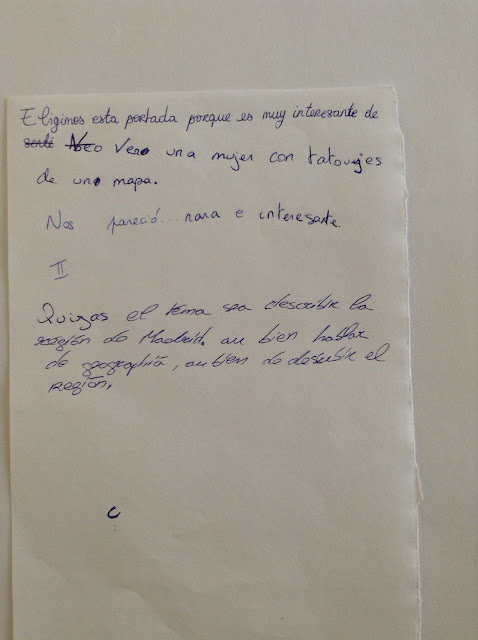 Eligimos esta portada porque es muy interesante de
Vero una mujer con tatouajes
de uno mapa.
Nos pareció... rara e interesante.
II
Quizas el tema sea describir la
región de Madrid. au bien hablar
de geographia, au bien de describir el
región.